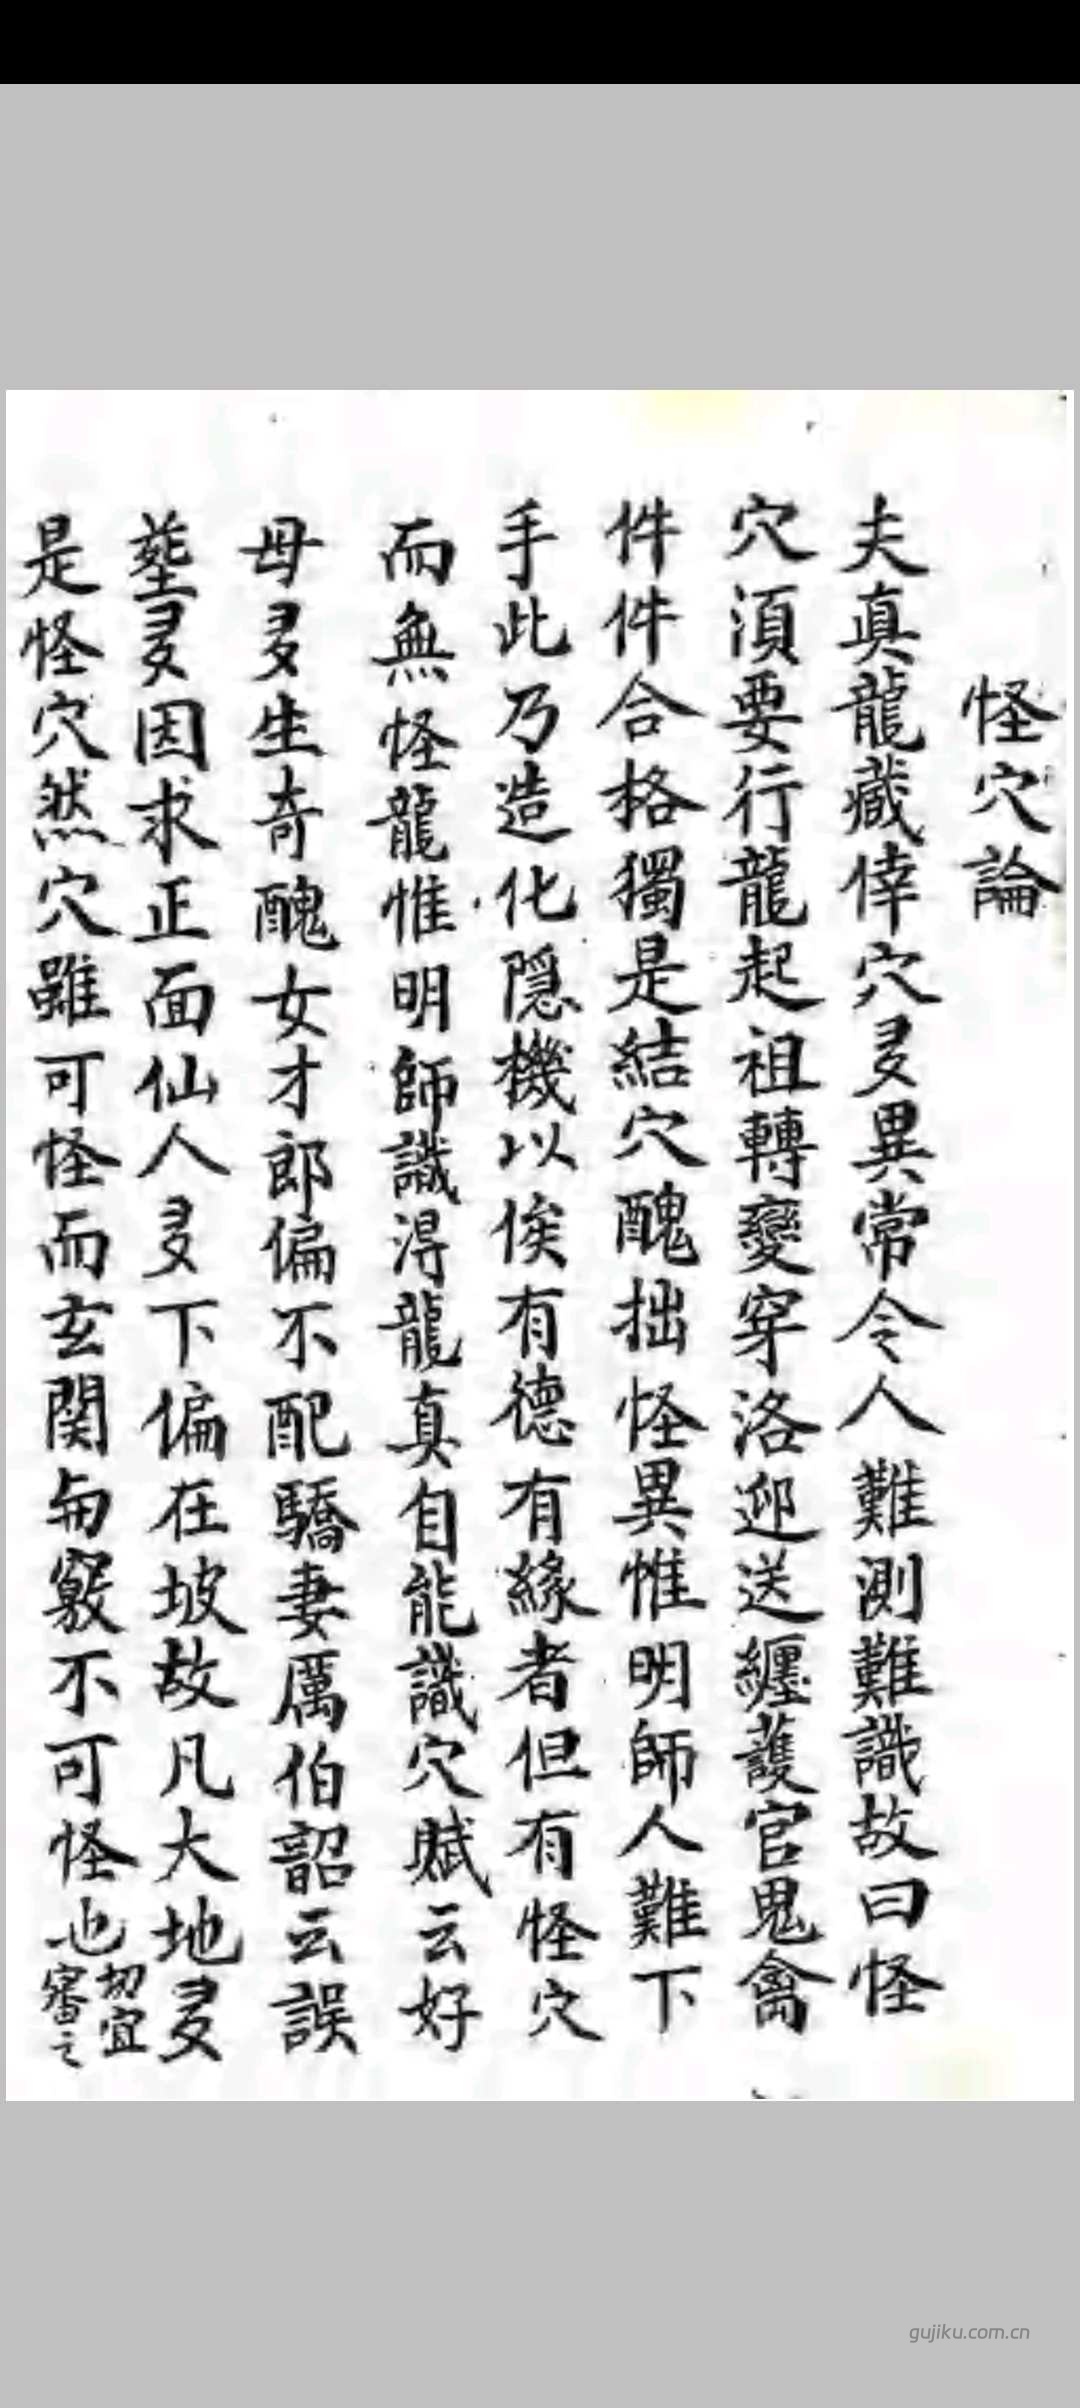 怪穴論
夫真龍藏倖穴多異常令人難測難識故曰怪
穴須要行龍起祖轉變穿洛迎送纏護官鬼禽
件件合格獨是結穴醜拙怪異惟明師人難下
手此乃造化隱機以俟有德有緣者但有怪穴
而無怪龍惟明師識得龍真自能識穴賦云好
母多生奇醜女才郎偏不配驕妻厲伯韶云誤
塟多因求正面仙人多下偏在坡故凡大地多
是怪穴然穴雖可怪而玄関竅不可怪也切宜
審之
gujiku.com.cn